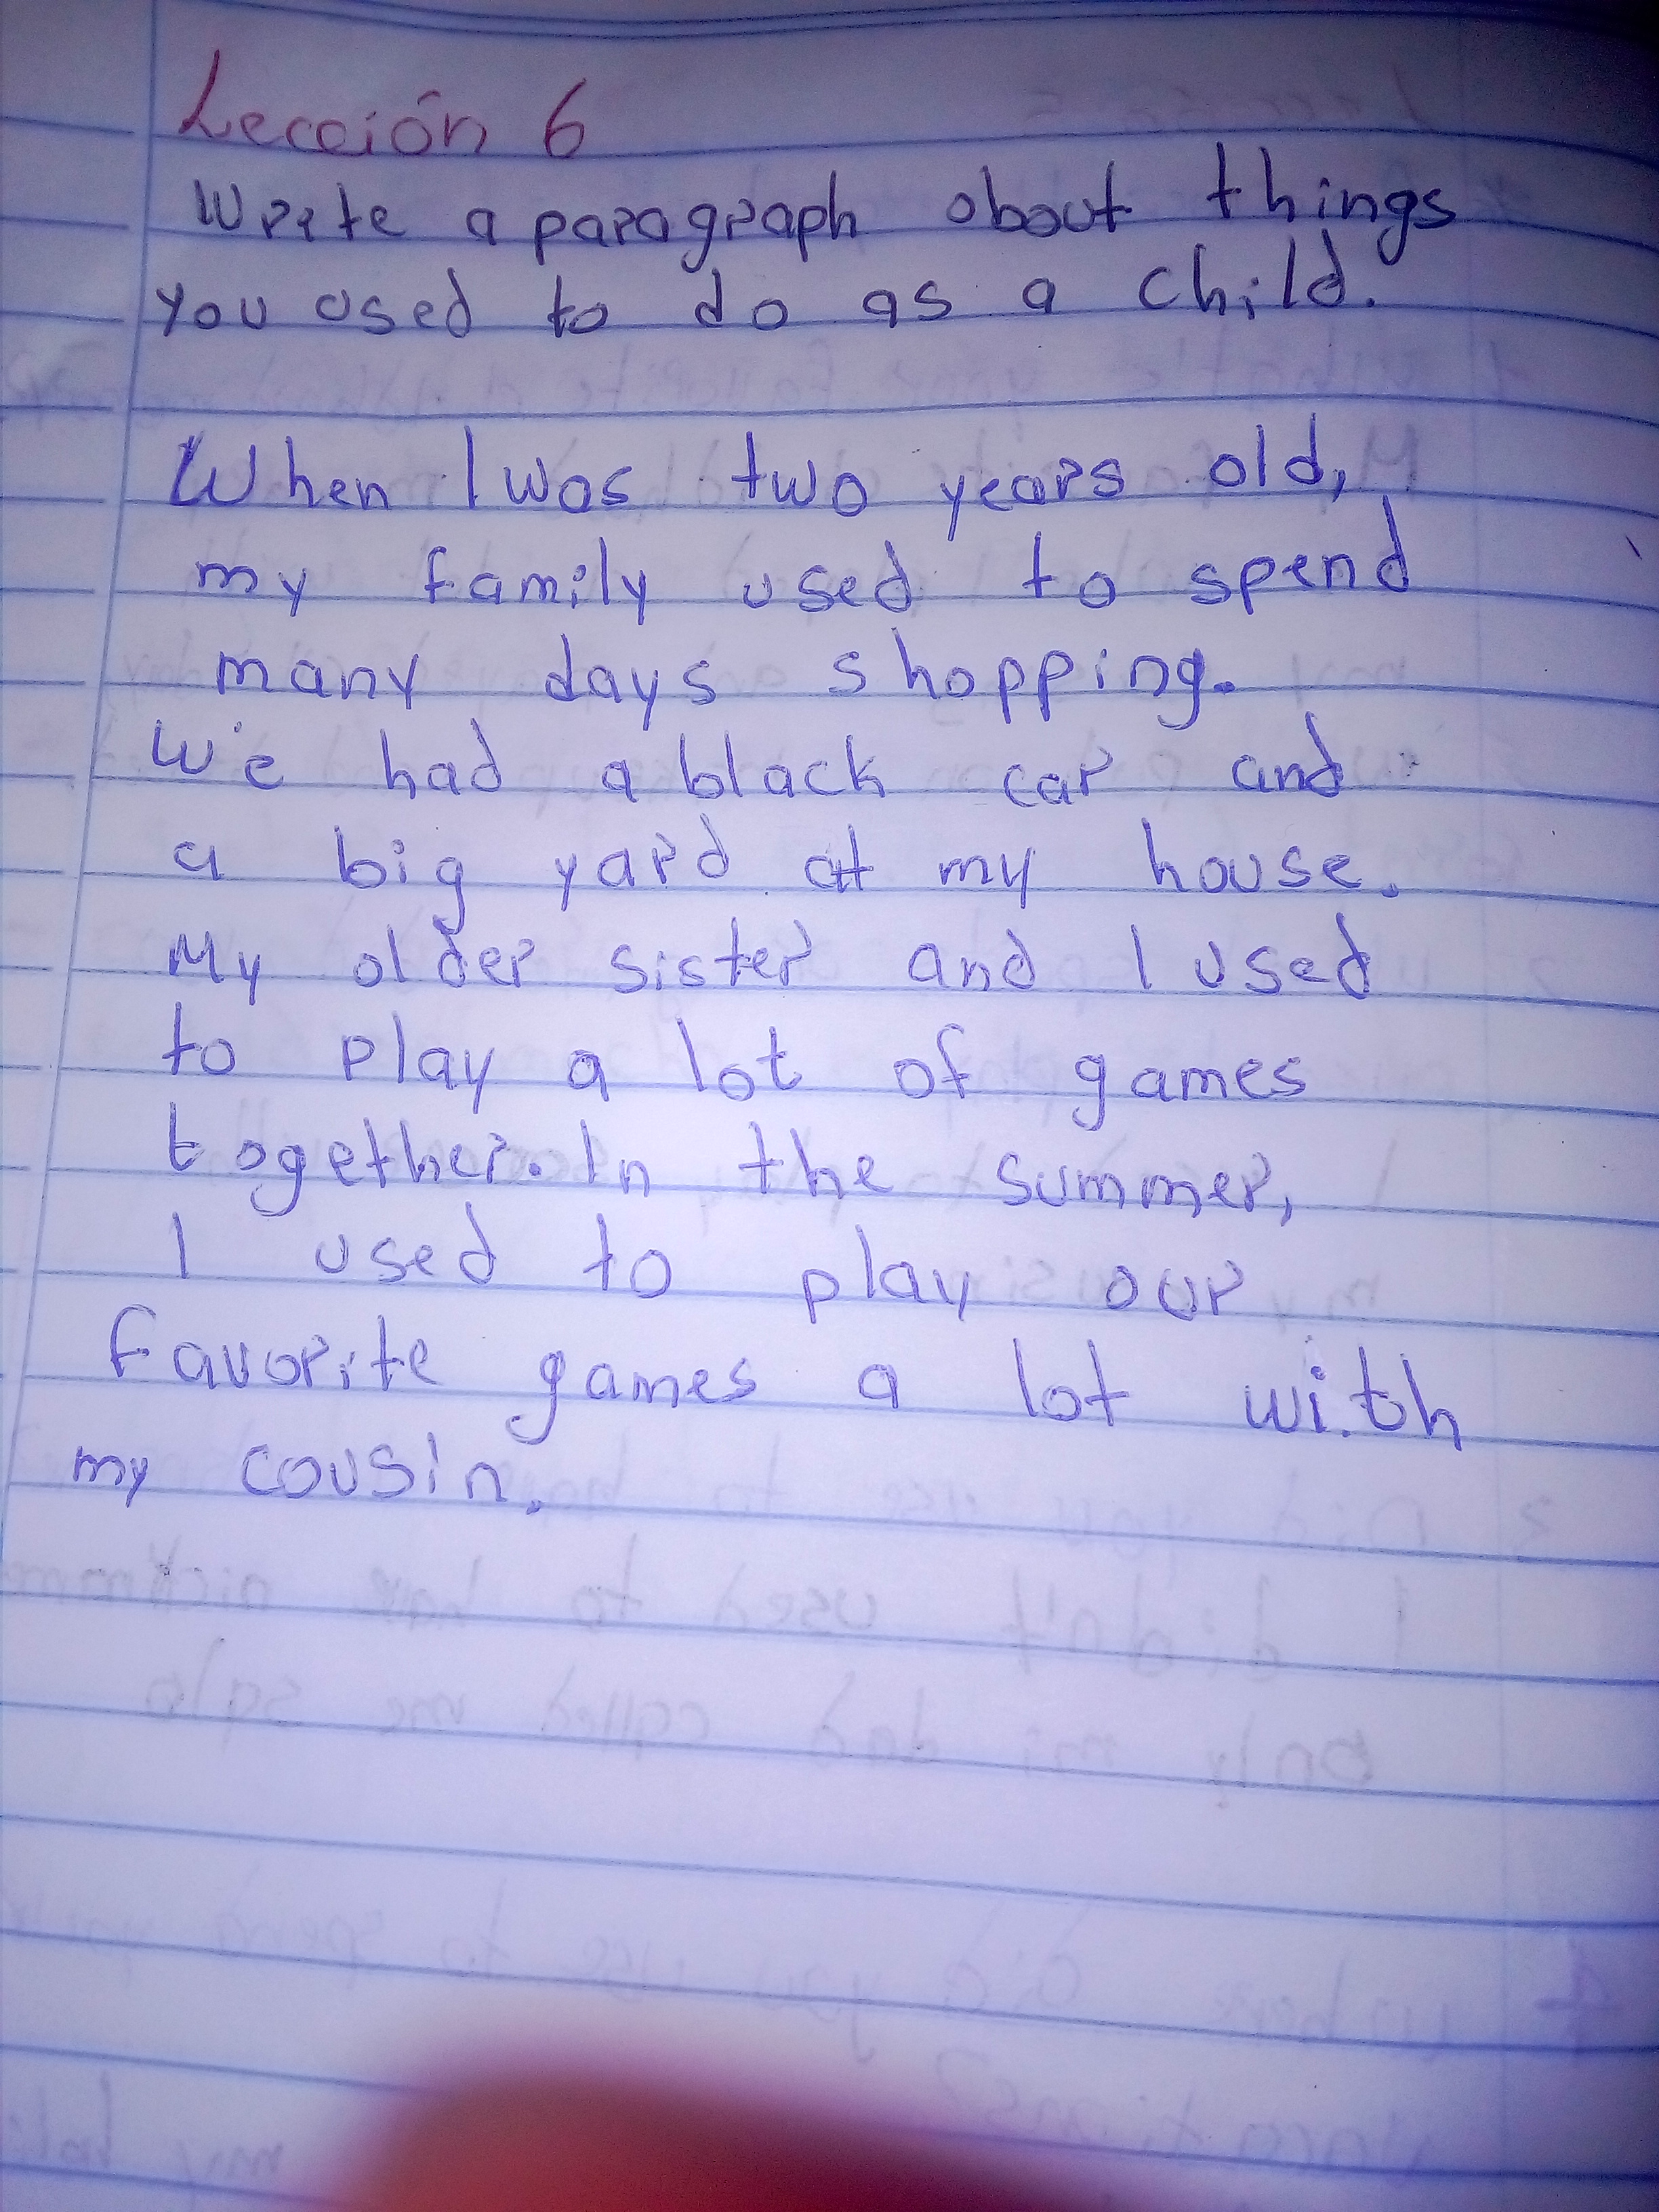 Lección 6
Write a paragraph about things
you used to do as a child.
When I was two years old,
my family used to spend
many days shopping.
We had a black car and
a big yard at my house.
My older sister and I used
to play a lot of games
together. In the summer,
I used to play our
favorite games a lot with
my cousin.